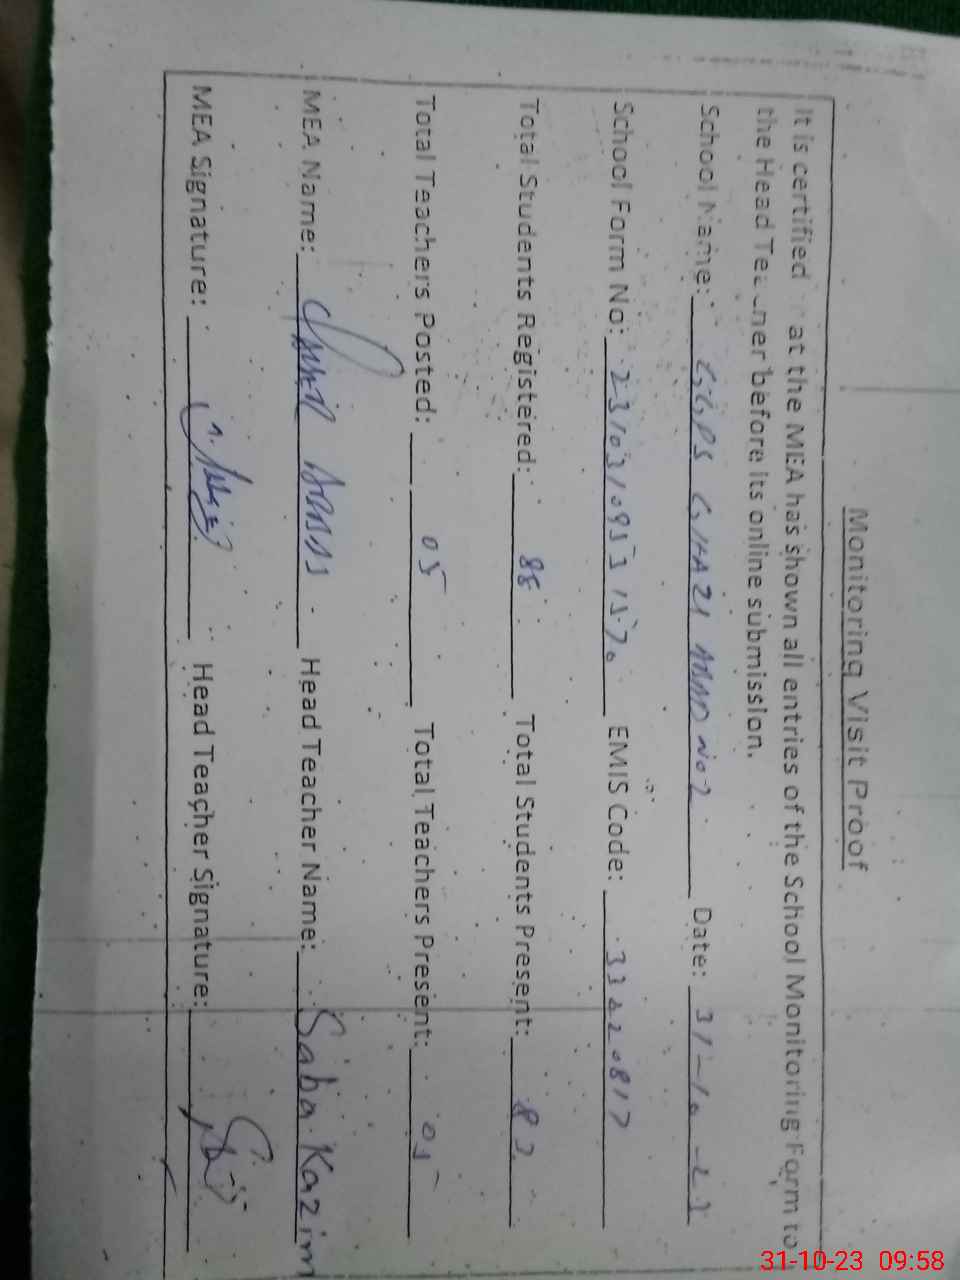 Monitoring Visit Proof
It is certified at the MEA has shown all entries of the School Monitoring Form to
the Head Teacher before its online submission.
School Name: GGPS GHAZI ABAD No 2 Date: 31-10-23
School Form No: EMIS Code:
Total Students Registered: 88 Total Students Present: 82
Total Teachers Posted: 05 Total Teachers Present: 05
MEA Name: Head Teacher Name: Saba Kazim
MEA Signature: Head Teacher Signature:
31-10-23 09:58